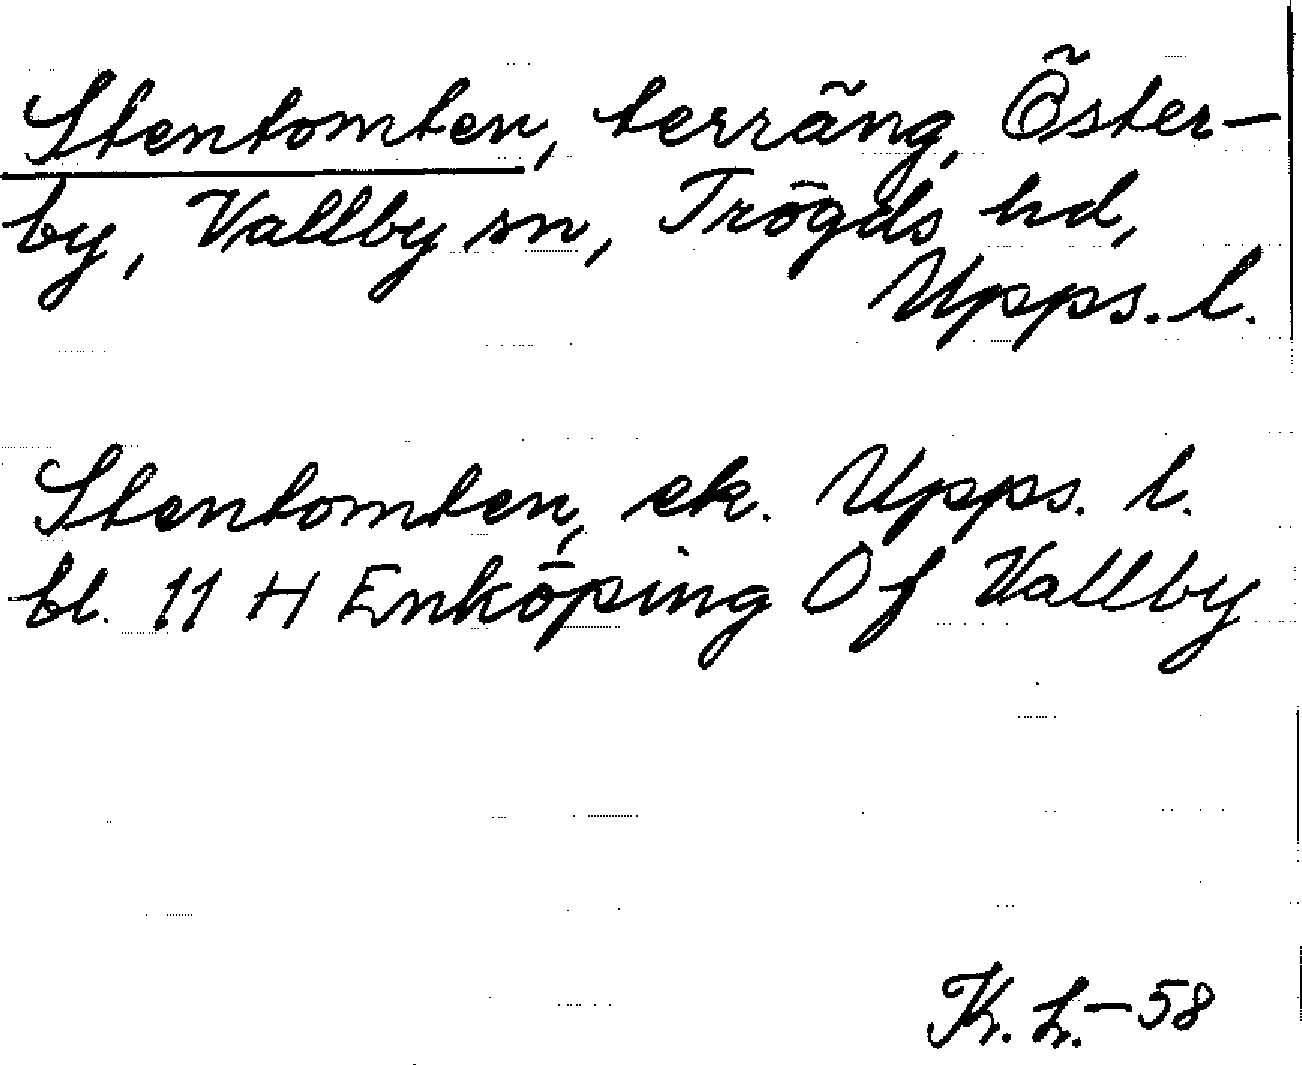 Stentomten, terräng, Öster-
by, Vallby sn, Trögds hd,
Upps. l.
Stentomten, ek. Upps. l.
bl. 11 H Enköping Of Vallby
K. L.-58